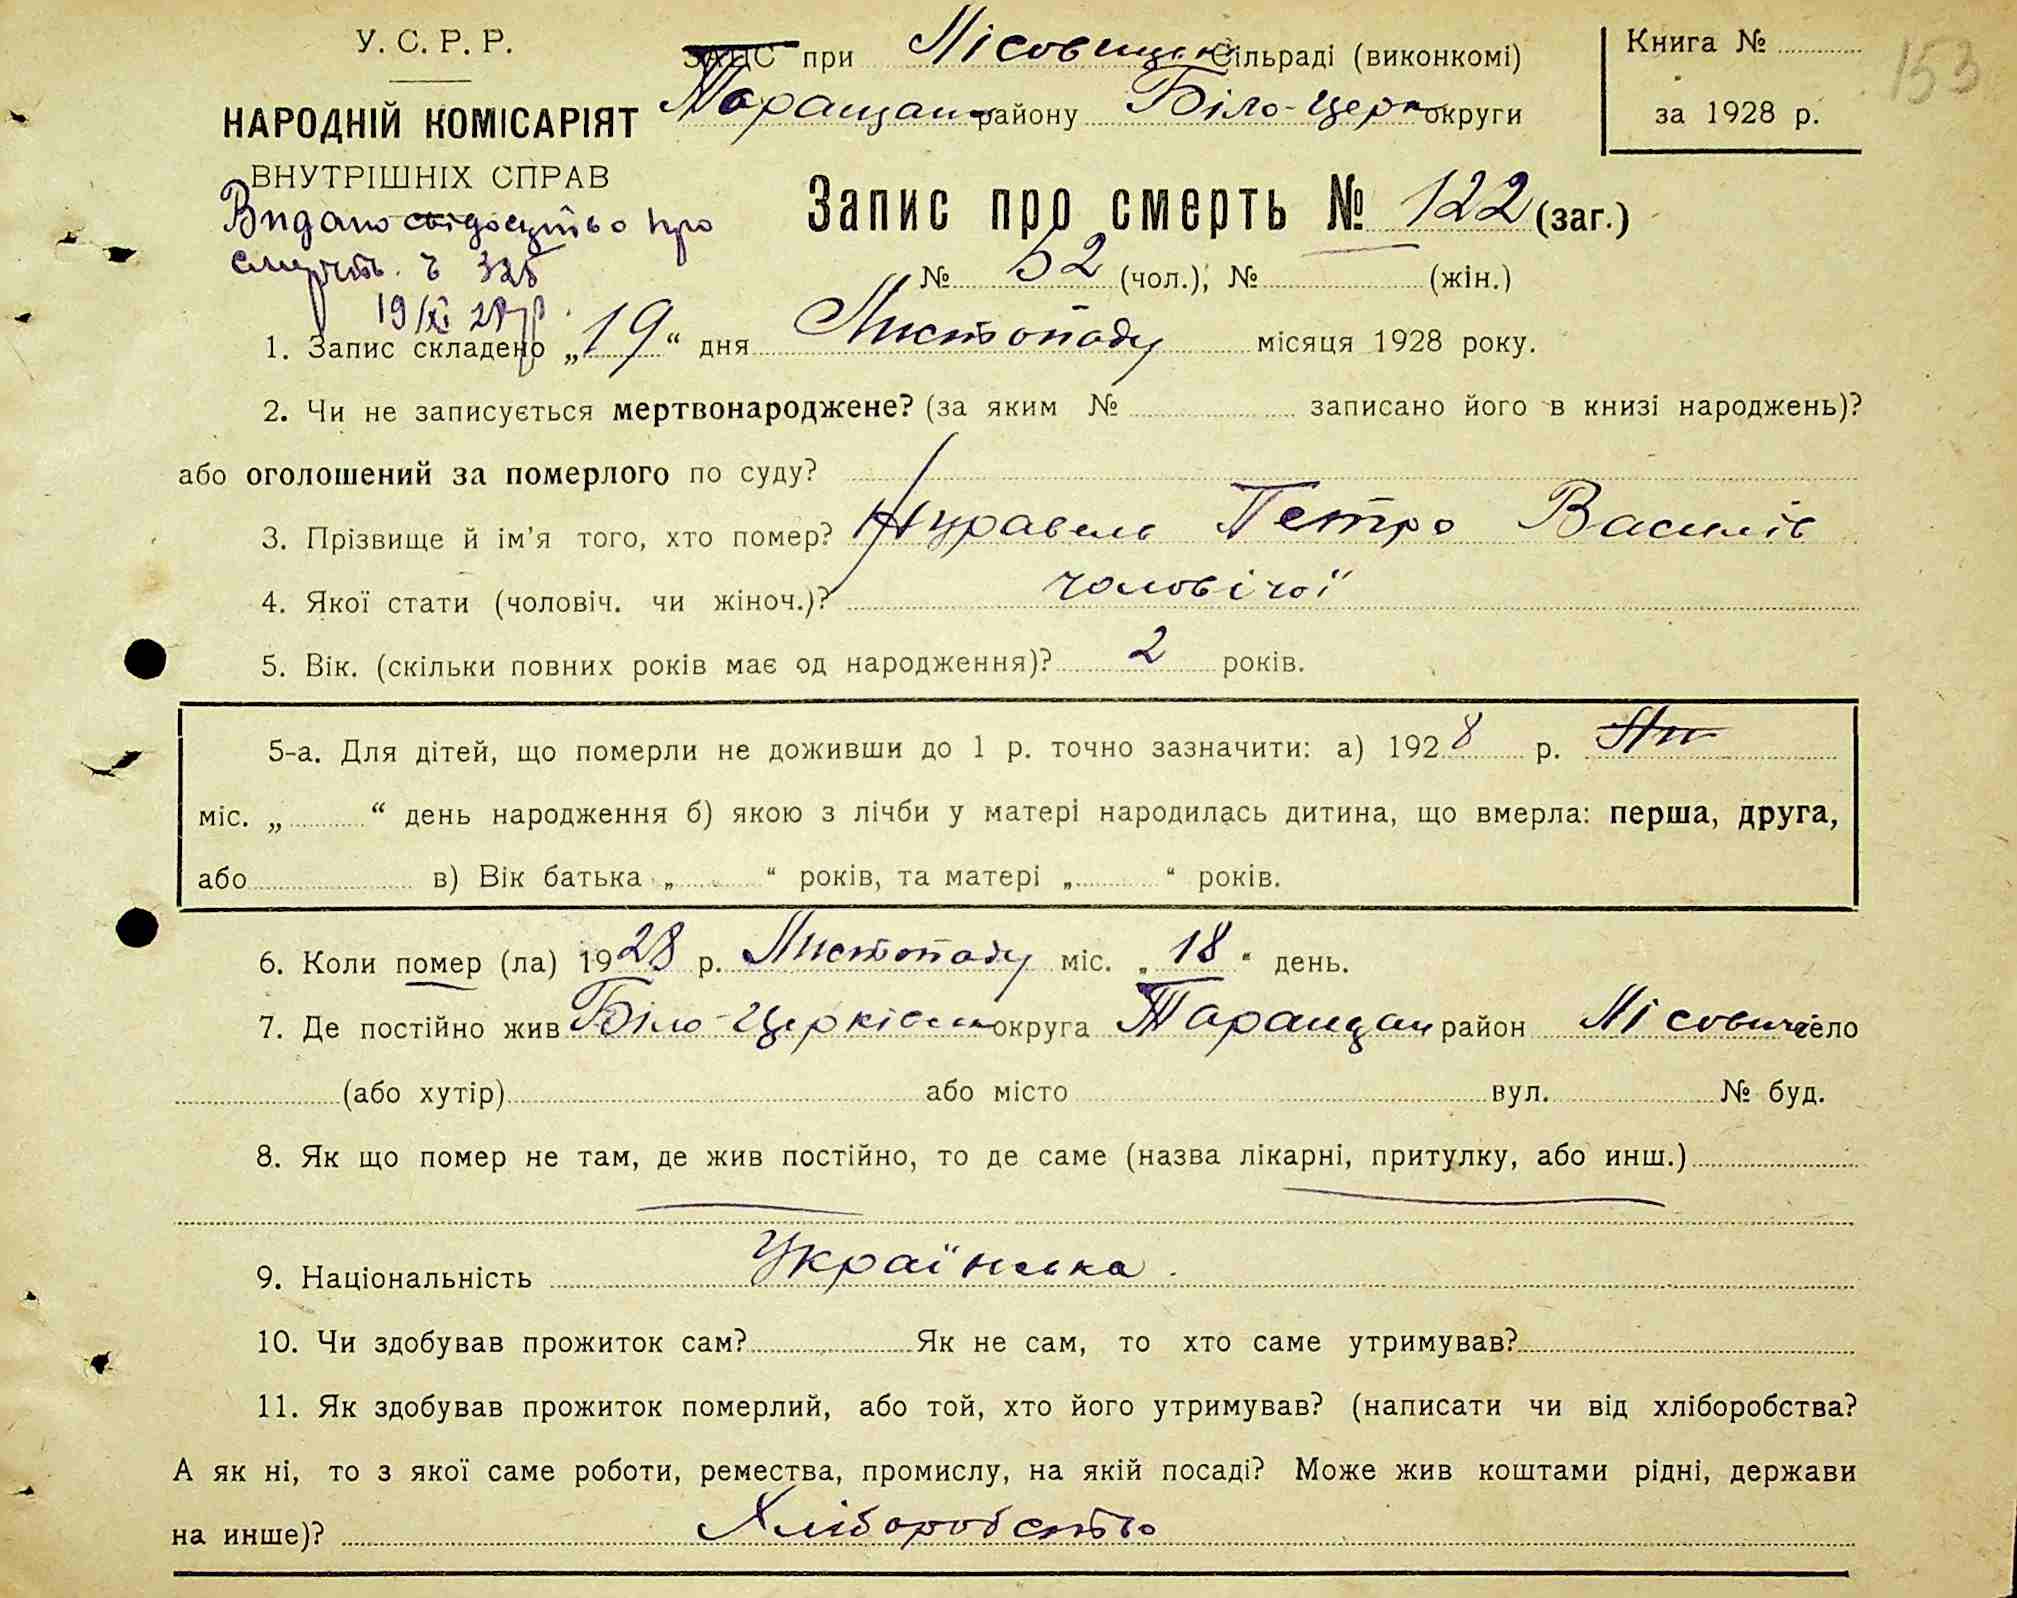 У. С. Р. Р.
НАРОДНІЙ КОМІСАРІЯТ
ВНУТРІШНІХ СПРАВ
Видано свідоцтво про
смерть. ч 325
19/XI 28 р.
ЗАПС при Лісовицьк Сільраді (виконкомі)
Таращан району Біло-Церк округи
Книга №
за 1928 р.
153
Запис про смерть № 122 (заг.)
№ 52 (чол.), № (жін.)
1. Запис складено „19“ дня Листопаду місяця 1928 року.
2. Чи не записується мертвонароджене? (за яким № записано його в книзі народжень)?
або оголошений за померлого по суду?
3. Прізвище й ім'я того, хто помер? Журавель Петро Василів
4. Якої стати (чоловіч. чи жіноч.)? чоловічої
5. Вік. (скільки повних років має од народження)? 2 років.
5-а. Для дітей, що померли не доживши до 1 р. точно зазначити: а) 1928 р.
міс. „ “ день народження б) якою з лічби у матері народилась дитина, що вмерла: перша, друга,
або в) Вік батька „ “ років, та матері „ “ років.
6. Коли помер (ла) 1928 р. Листопаду міс. „18“ день.
7. Де постійно жив Біло-Церківськ округа Таращан район Лісовичі село
(або хутір) або місто вул. № буд.
8. Як що помер не там, де жив постійно, то де саме (назва лікарні, притулку, або инш.)
9. Національність Українська.
10. Чи здобував прожиток сам? Як не сам, то хто саме утримував?
11. Як здобував прожиток померлий, або той, хто його утримував? (написати чи від хліборобства?
А як ні, то з якої саме роботи, ремества, промислу, на якій посаді? Може жив коштами рідні, держави
на инше)? Хліборобство